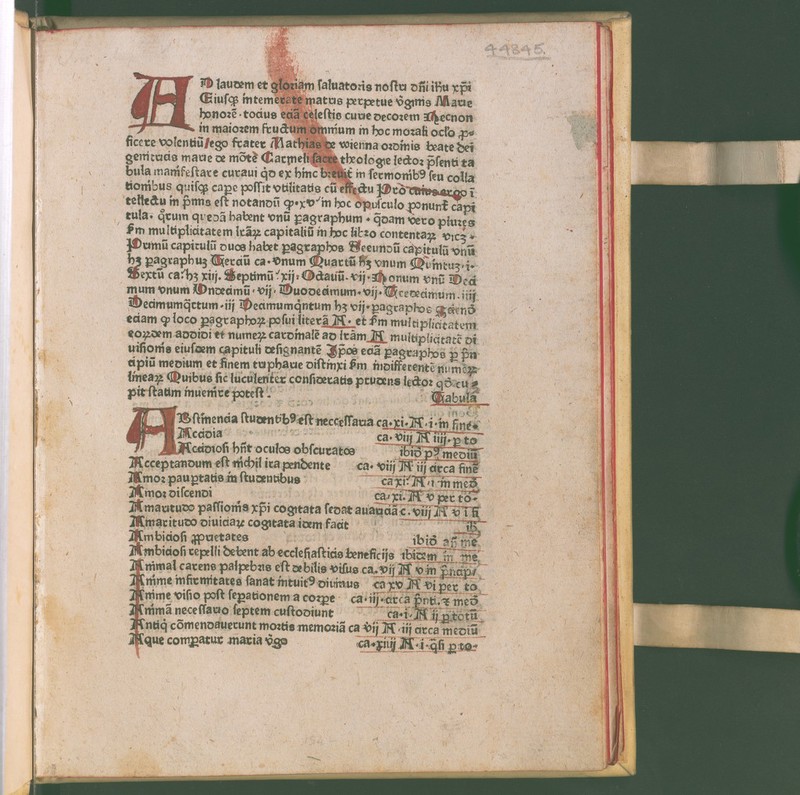 44845.
AD laudem et gloriam saluatoris nostri dñi ihu xp̄i
Eiusq̨ intemerate matris perpetue v̄ginis Marie
honorē · tocius eciā celestis curie decorem Necnon
in maiorem fructum omnium in hoc morali oc̄lo p̱-
ficere volentiū/ego frater Mathias de wienna ordinis beate dei
genitricis marie de mōte Carmeli sacre theologie lector p̄senti ta
bula manifestare curaui q̄d ex hinc breuit̄ in sermonib⁹ seu colla
tionibus quisq̨ cape possit vtilitatis cū effectu Pro cuius ergo ī
tellectu in p̄mis est notandū q̨ · xv · in hoc opusculo ponunt̄ capi
tula · q̄rum quedā habent vnū paragraphum · q̄dam vero plures
s̄m multiplicitatem lrāꝝ capitaliū in hoc libro contentaꝝ vicz ·
Primū capitulū duos habet p̄agraphos Secundū capitulū vnū
hꝫ p̄agraphuꝫ Terciū ca · vnum Quartū hꝫ vnum Quintuꝫ · i ·
Sextū ca · hꝫ xiij. Septimū · xij · Octauū · vij · Nonum vnū Deci
mum vnum Undecimū · vij · Duodecimum · vij · Tredecimum · iiij
Decimumq̄rtum · iij Decimumq̄ntum hꝫ vij · p̄agraphos Sciend
eciam q̨ loco p̄agraphoꝝ posui literā A · et s̄m multiplicitatem
eorꝝdem addidi et numeꝝ cardinalē ad lrām A multiplicitatē di
uisionis eiusdem capituli designantē Ip̄os eciā p̄agraphos p̱ p̄n
cipiū medium et finem tripharie distinxi s̄m indifferentē numeꝝ
lineaꝝ Quibus sic luculenter consideratis prudens lector q̄d cu-
pit statim inuenire potest · Tabula
ABstinencia studentib⁹ est neccessaria ca · xi · A · i · in fine ·
Accidia ca · viij A iiij · p̱ to
Accidiosi hn̄t oculos obscuratos ibid̄ p⁹ mediū
Acceptandum est nichil ira pendente ca · viij A iij circa finē
Amor paup̱tatis in studentibus ca xi · A · i in med̄
Amor discendi ca · xi · A v per to ·
Amaritudo passionis xp̄i cogitata sedat auariciā c. viij A v i fi
Amaritudo diuiciaꝝ cogitata idem facit ib̄
Ambiciosi p̱prietates ibid̄ ap̄ me
Ambiciosi repelli debent ab ecclesiasticis beneficijs ibidem in me
Animal carens palpebris est debilis visus ca · vij A v in p̄ncip
Anime infirmitates sanat intuit⁹ diuinus ca xv A vi per to
Anime visio post sep̱ationem a corpe ca · iij · circa p̄nci. ⁊ med̄
Animā necessario septem custodiunt ca · i · A ij p̱ totū
Antiq̄ cōmendauerunt mortis memoriā ca vij A · iij circa mediū
Aque comp̱atur maria v̄go ca · xiiij A · i · q̄si p̱ to ·